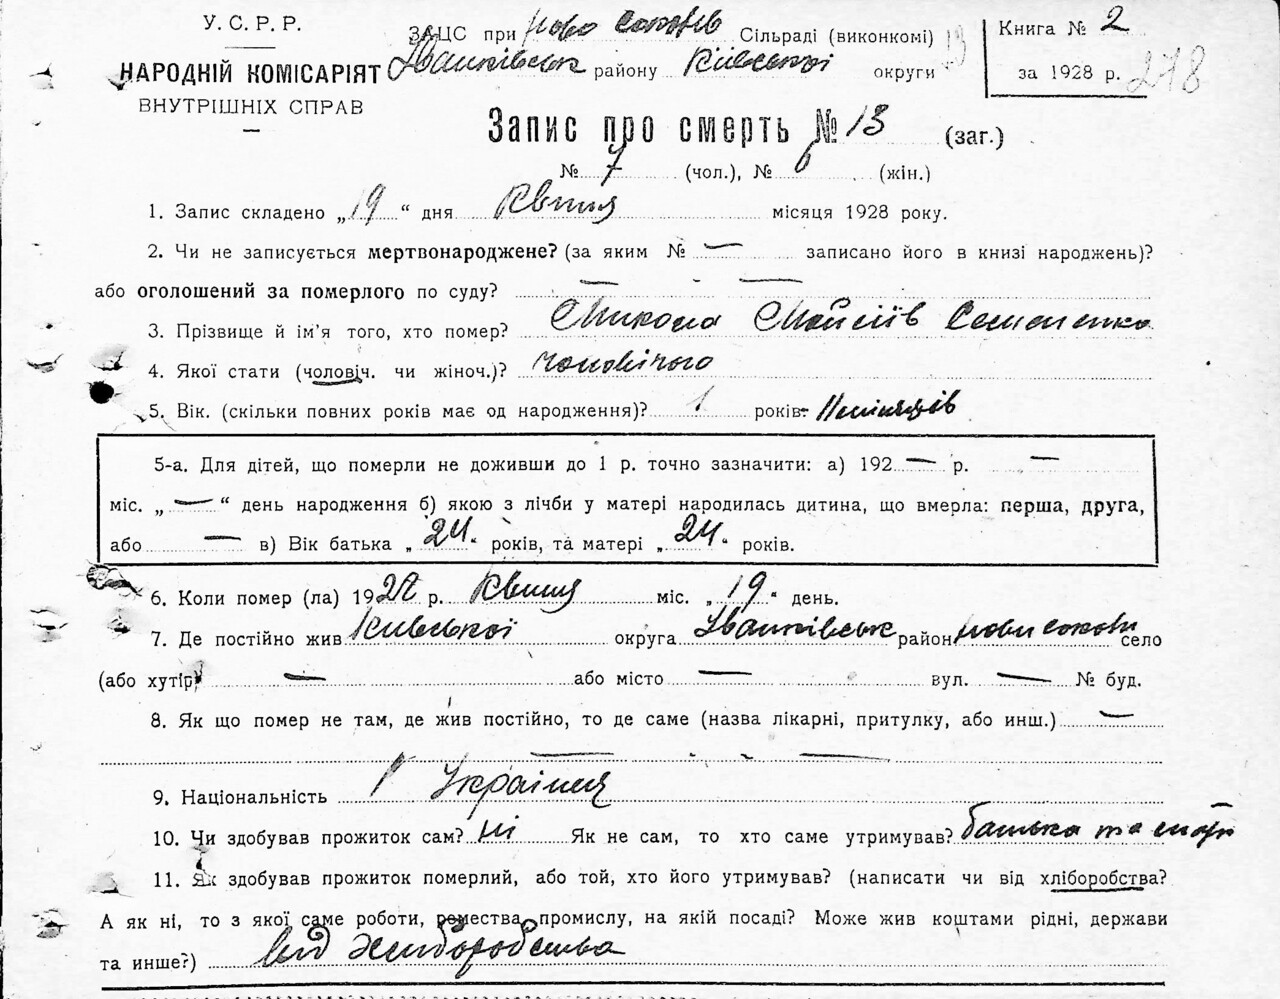 У. С. Р. Р.
НАРОДНІЙ КОМІСАРІЯТ
ВНУТРІШНІХ СПРАВ
ЗАЦС при ново соколів Сільраді (виконкомі)
Іванківськ району Київської округи
Книга № 2
за 1928 р.
278
Запис про смерть № 13 (заг.)
№ 7 (чол.), № 6 (жін.)
1. Запис складено „19“ дня Квітня місяця 1928 року.
2. Чи не записується мертвонароджене? (за яким № — записано його в книзі народжень)?
або оголошений за померлого по суду? — —
3. Прізвище й ім'я того, хто помер? Микола Семененко
4. Якої стати (чоловіч. чи жіноч.)? чоловічого
5. Вік. (скільки повних років має од народження)? 1 років
5-а. Для дітей, що померли не доживши до 1 р. точно зазначити: а) 192— р. —
міс. „—“ день народження б) якою з лічби у матері народилась дитина, що вмерла: перша, друга,
або — в) Вік батька „24“ років, та матері „24“ років.
6. Коли помер (ла) 1928 р. Квітня міс. „19“ день.
7. Де постійно жив Київської округа Іванківськ район нови соколи село
(або хутір) — або місто — вул. — № буд.
8. Як що помер не там, де жив постійно, то де саме (назва лікарні, притулку, або инш.) —
— —
9. Національність Українця
10. Чи здобував прожиток сам? ні Як не сам, то хто саме утримував? батько та
11. Як здобував прожиток померлий, або той, хто його утримував? (написати чи від хліборобства?
А як ні, то з якої саме роботи, ремества, промислу, на якій посаді? Може жив коштами рідні, держави
та инше?) від хліборобства